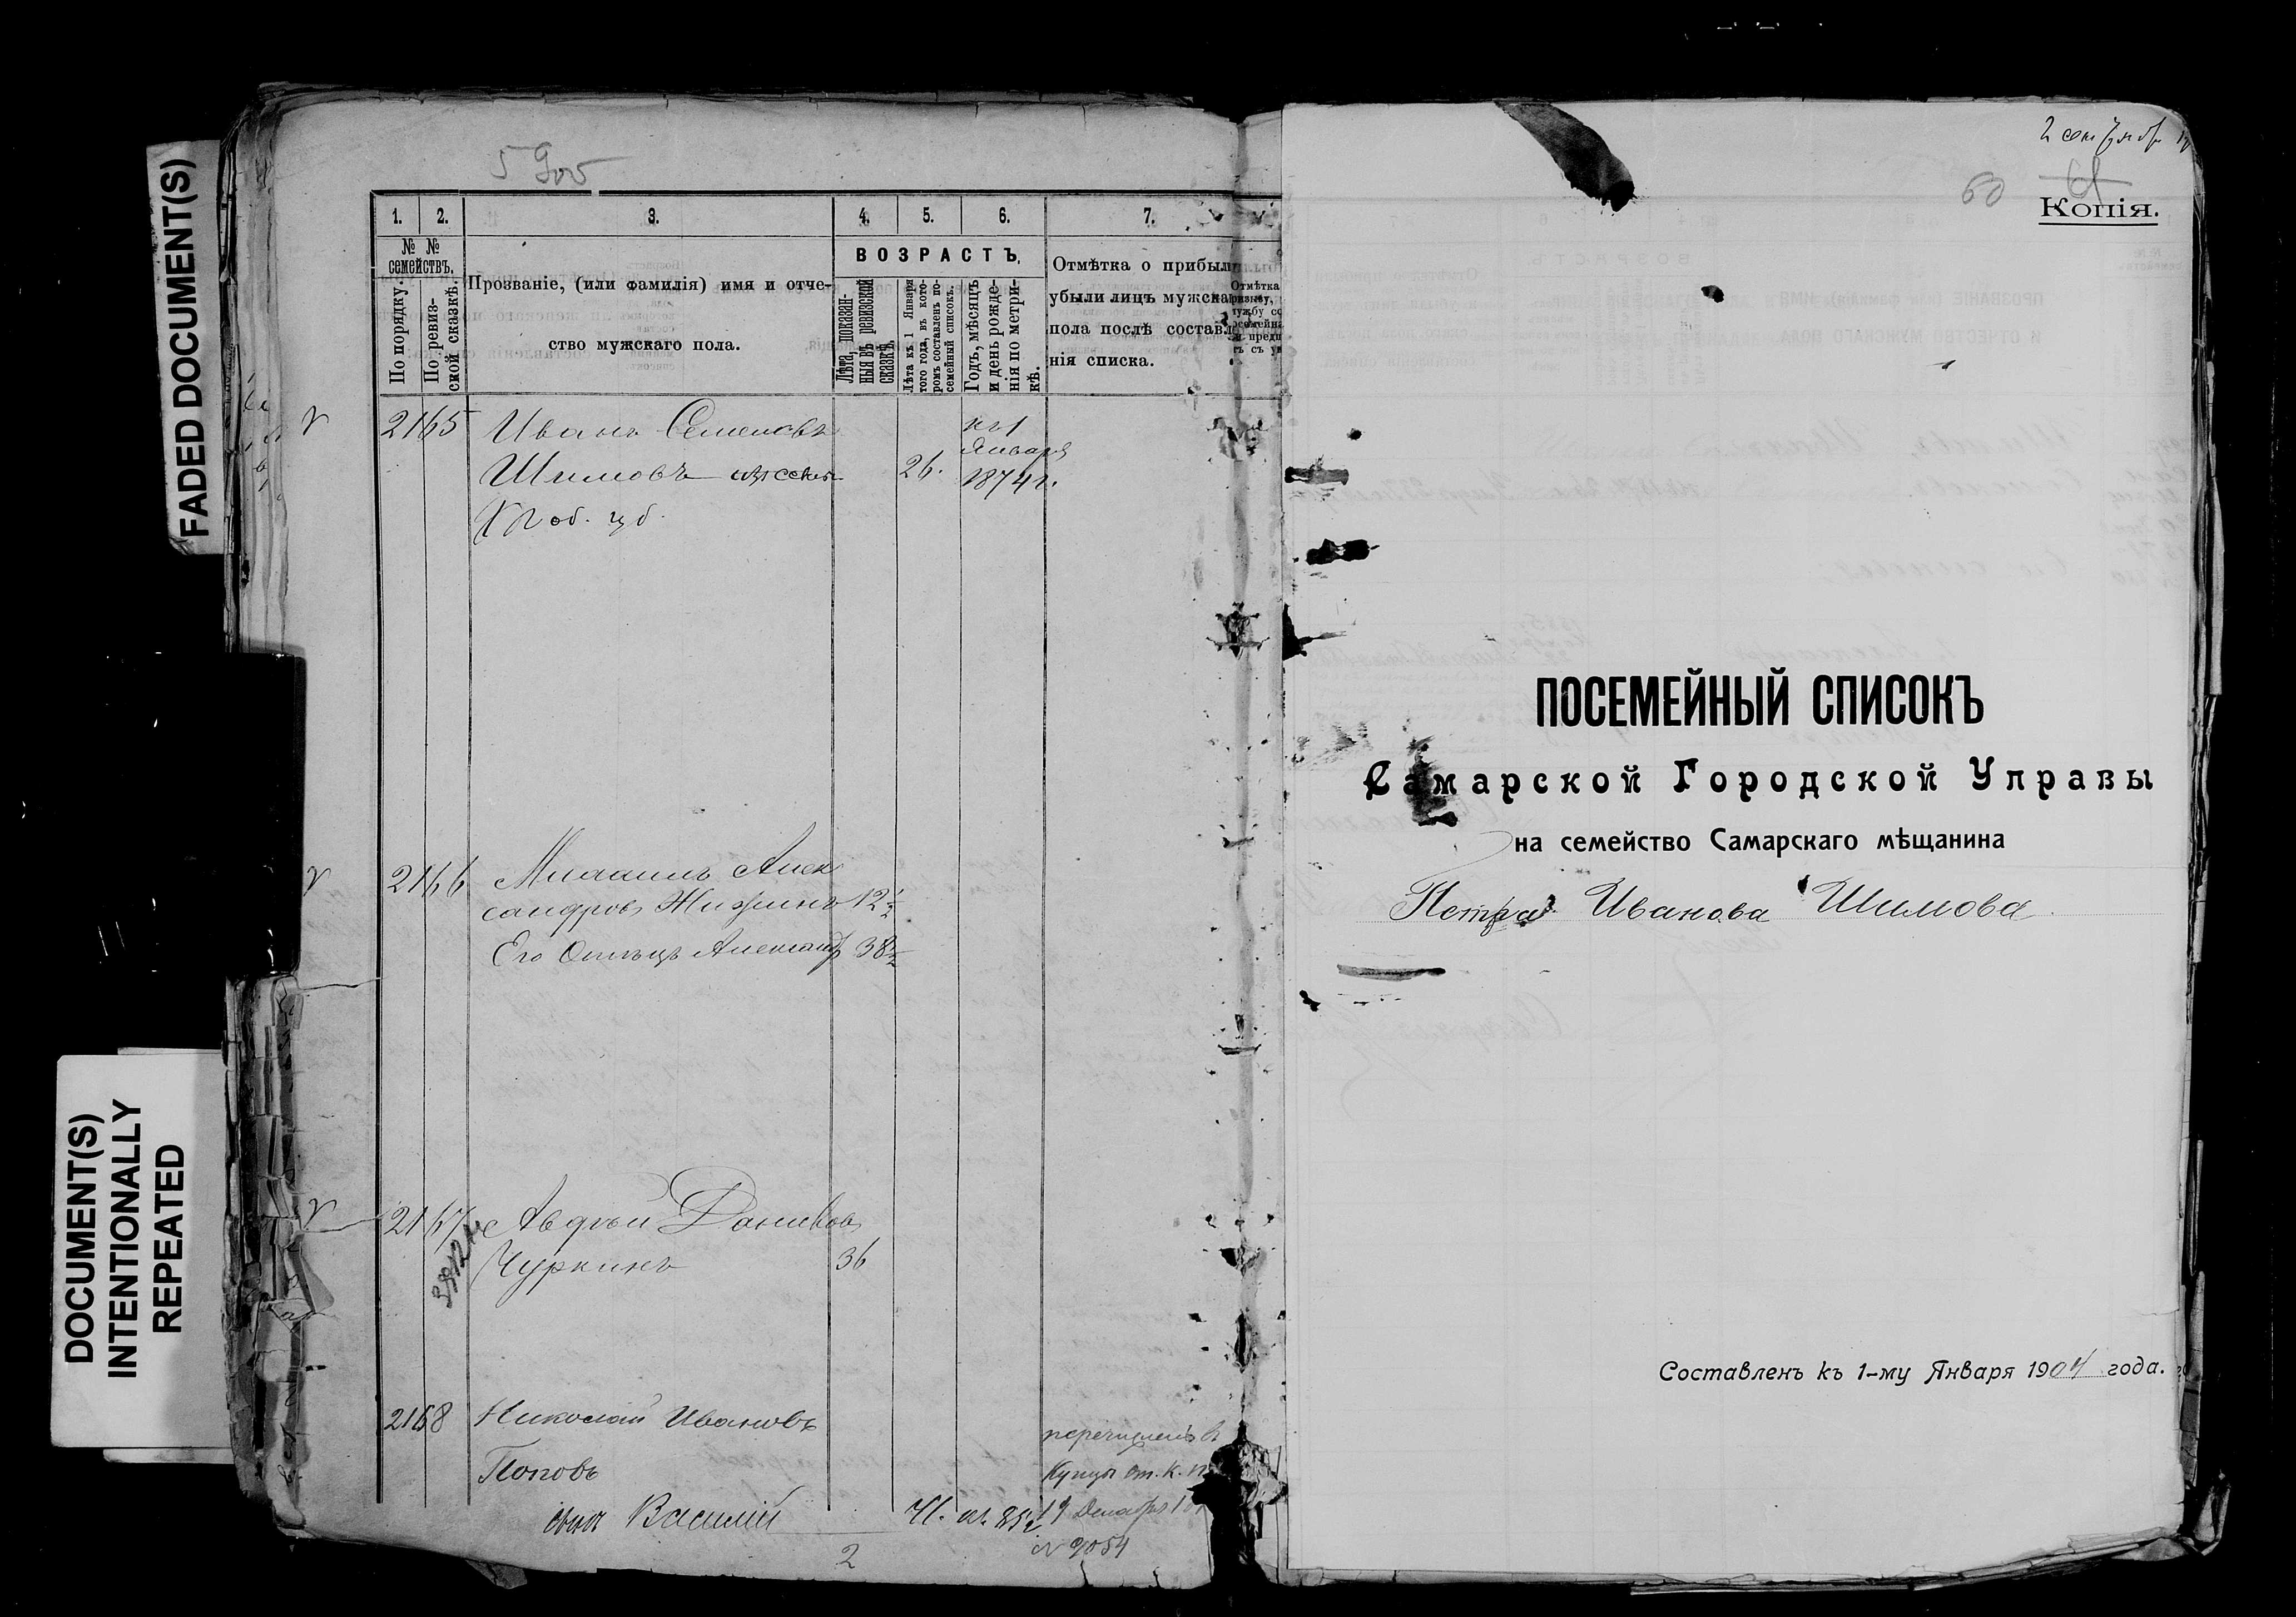 FADED DOCUMENT(S)
DOCUMENT(S)
INTENTIONALLY
REPEATED
1. 2. 3. 4. 5. 6. 7.
№ №
семействъ.
По порядку.
По ревиз-
ской сказкѣ.
Прозваніе, (или фамилія) имя и отче-
ство мужскаго пола.
ВОЗРАСТЪ.
Лѣта, показан-
ныя въ ревизской
сказкѣ.
Лѣта къ 1 Января
того года, въ кото-
ромъ составленъ по-
семейный списокъ.
Годъ, мѣсяцъ
и день рожде-
нія по метри-
кѣ.
Отмѣтка о прибыли
убыли лицъ мужска
пола послѣ составле
нія списка.
2165 Иванъ Семеновъ
Шимовъ 26.
къ 1
Января
1874 г.
2166 Михаилъ Алек
сандровъ 12½
Его Отецъ Александр 38½
2167 Авдѣй Даниловъ
Чуркинъ 36
2168 Николай Ивановъ
Поповъ
сынъ Василій 41.
перечисленъ в
Купцы от. К. П.
19 Декабря
№ 9054
2
60
Копія.
ПОСЕМЕЙНЫЙ СПИСОКЪ
Самарской Городской Управы
на семейство Самарскаго мѣщанина
Петра Иванова Шимова
Составленъ къ 1-му Января 1904 года.